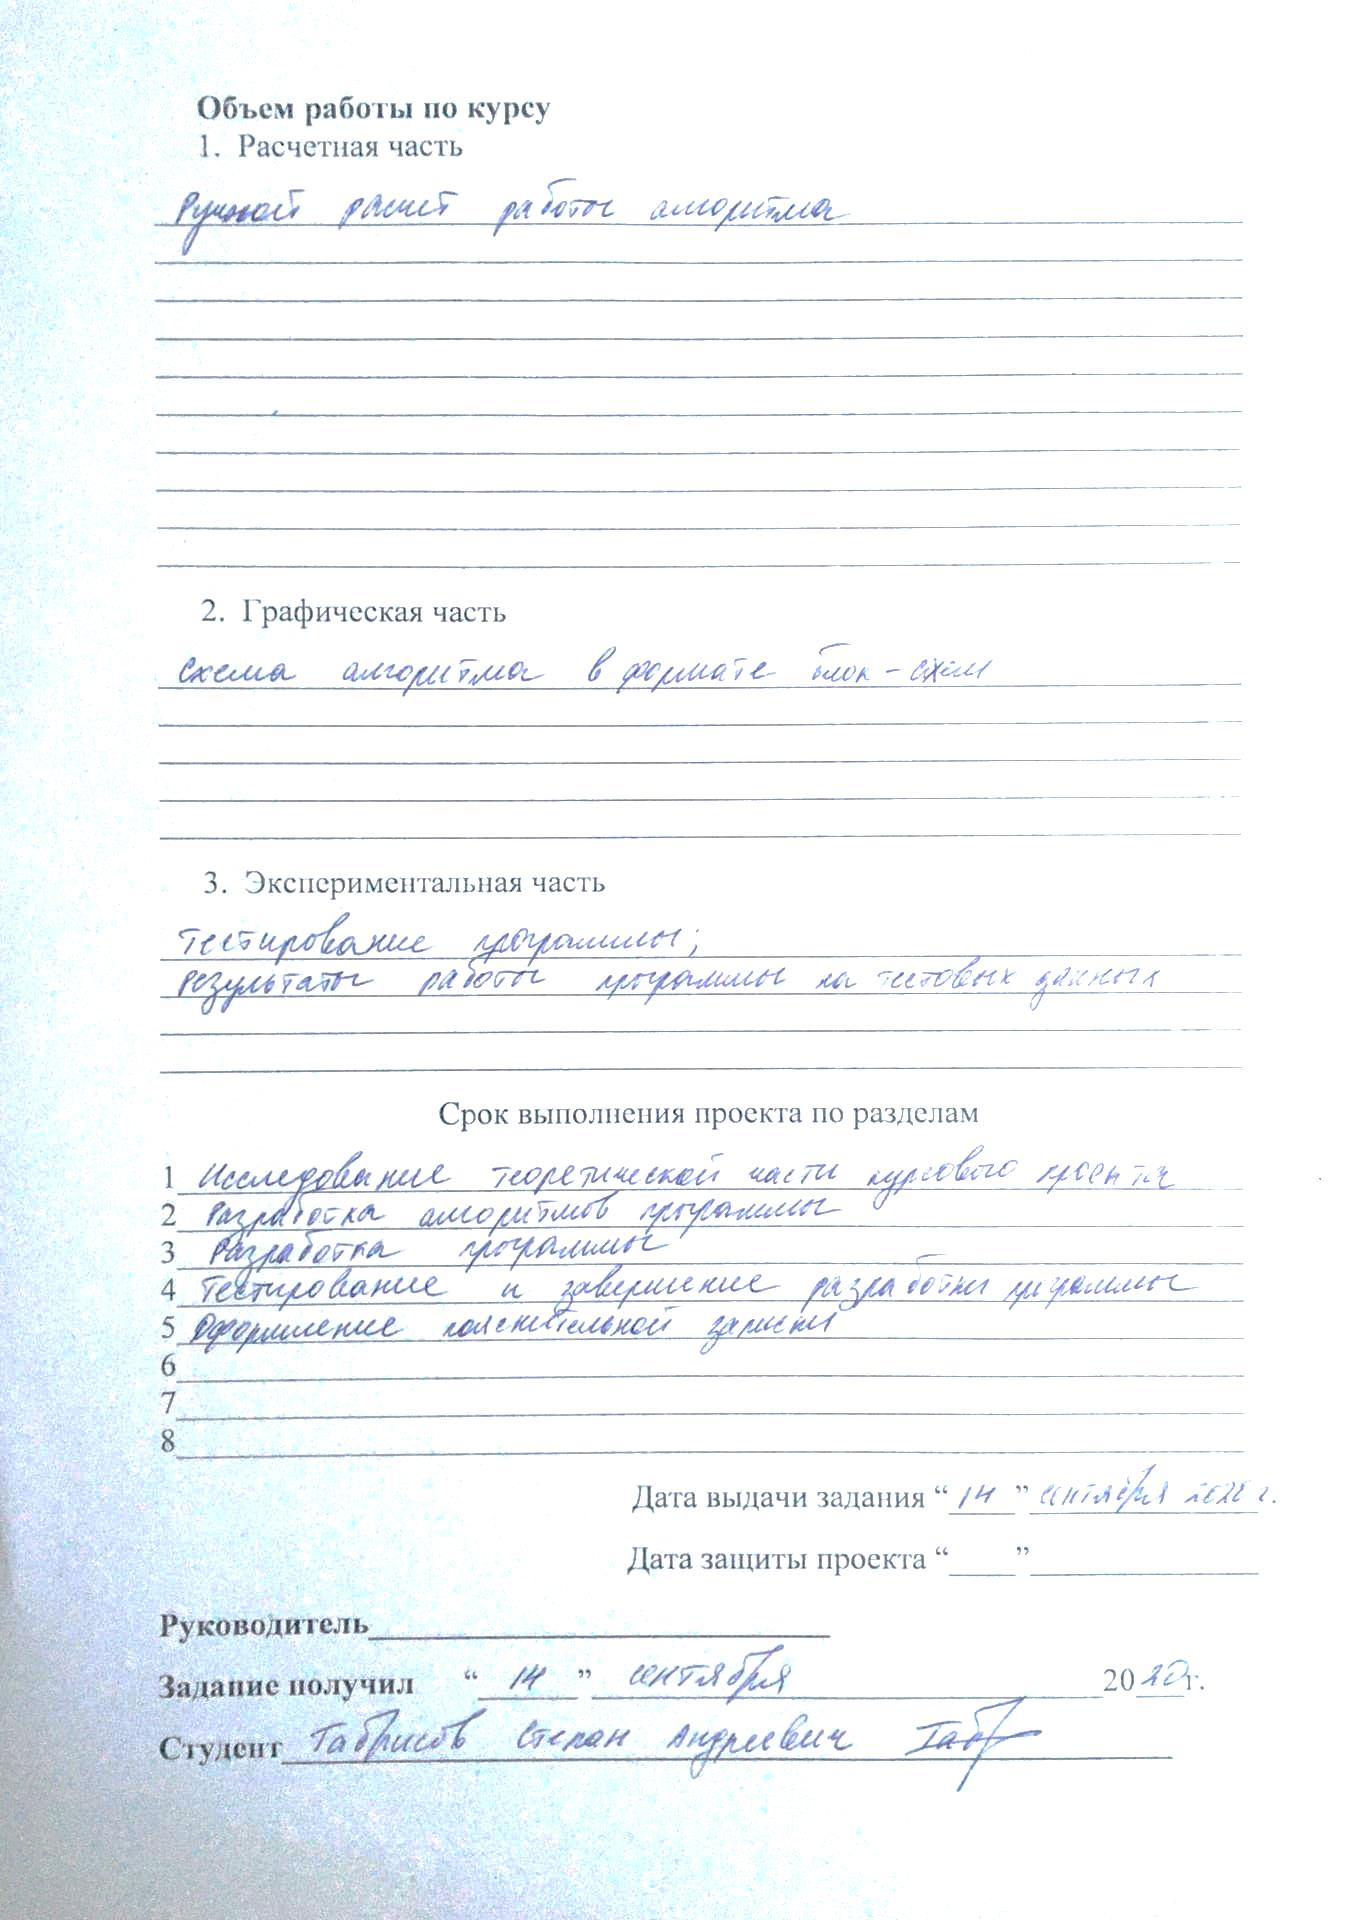 Объем работы по курсу
1. Расчетная часть
Ручной расчет работы алгоритма
2. Графическая часть
Схема алгоритма в формате блок-схем
3. Экспериментальная часть
Тестирование программы;
Результаты работы программы на тестовых данных
Срок выполнения проекта по разделам
1 Исследование теоретической части курсового проекта
2 Разработка алгоритмов программы
3 Разработка программы
4 Тестирование и завершение разработки программы
5 Оформление пояснительной записки
6
7
8
Дата выдачи задания “14” сентября 2020 г.
Дата защиты проекта “____” ______________
Руководитель____________________________
Задание получил “14” сентября 2020 г.
Студент Габрисов Степан Андреевич Габ